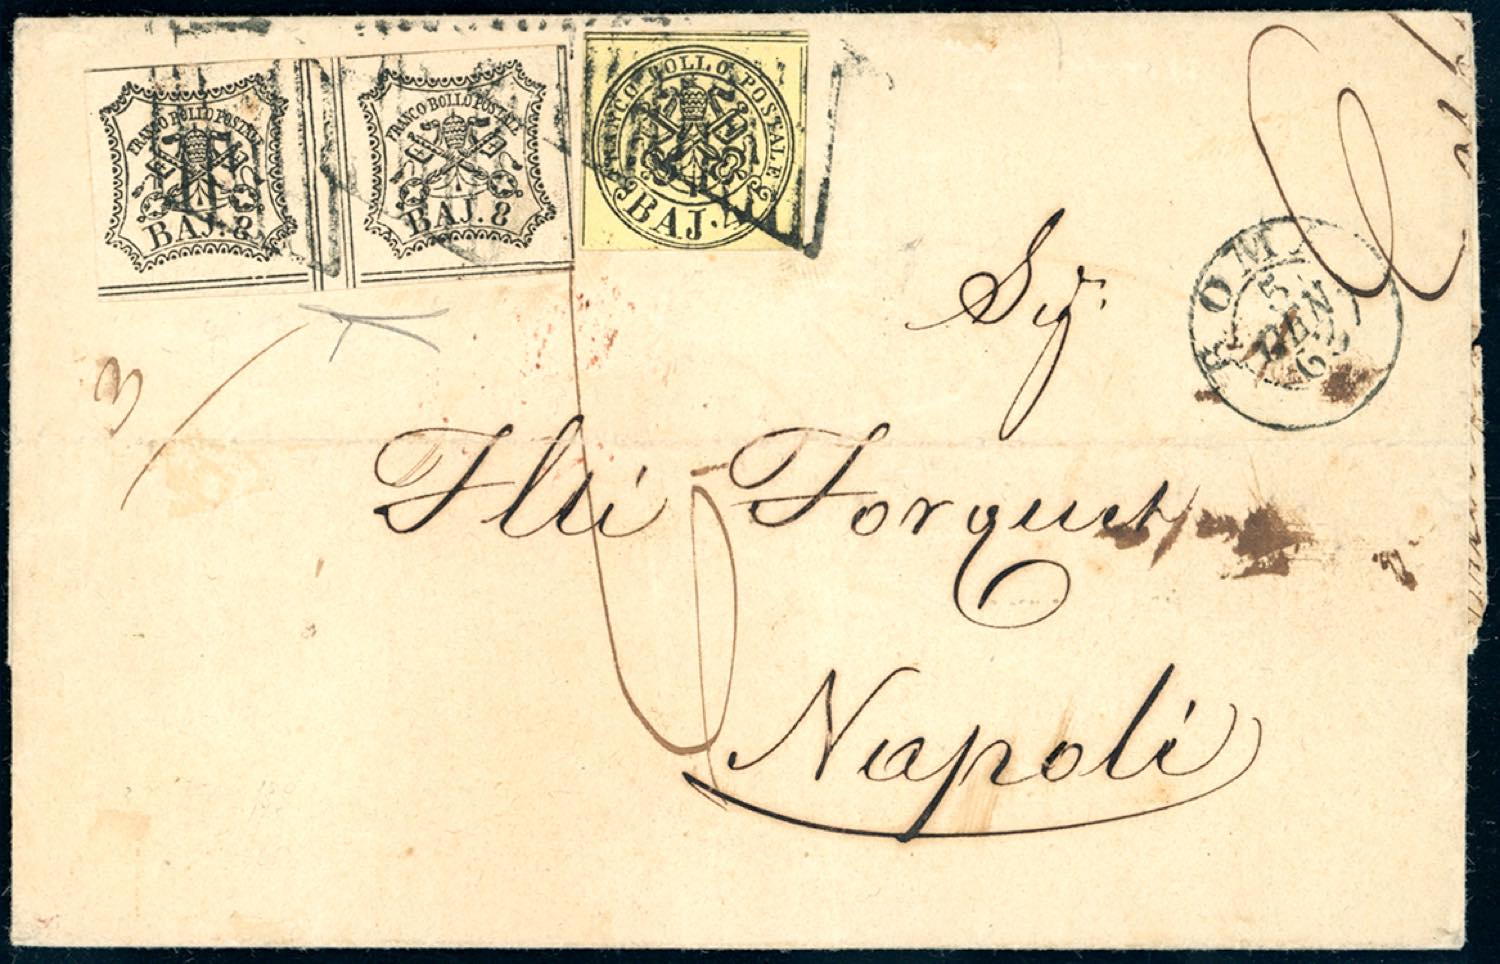 FRANCO BOLLO POSTALE
BAJ. 8
FRANCO BOLLO POSTALE
BAJ. 8
FRANCO BOLLO POSTALE
BAJ. 4
ROMA
5
GEN
62
Sig.
Flli Forquet
Napoli